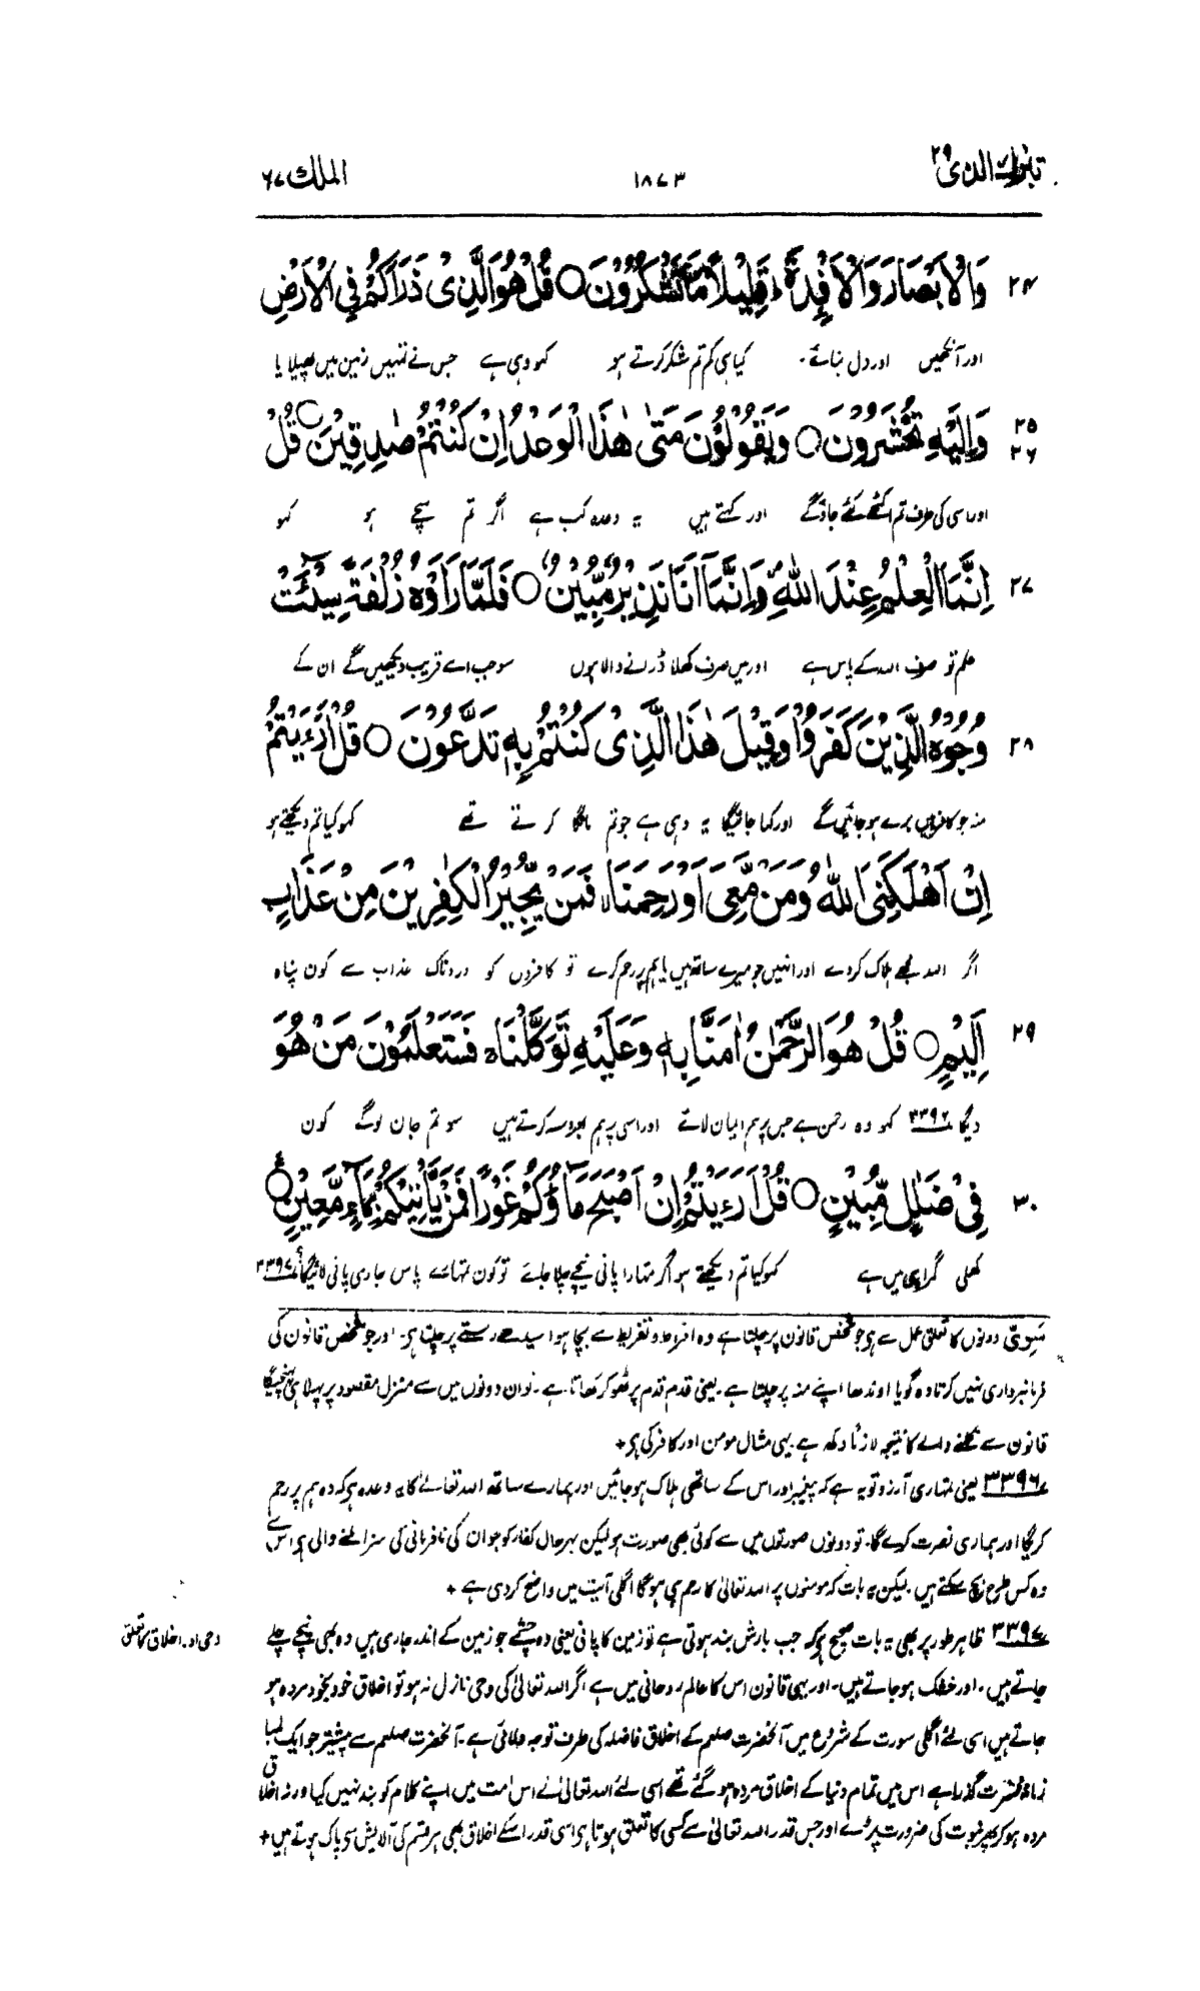 تبٰرک الذی ۲۹ ۱۸۷۳ الملک ۶۷
۲۴ وَالْاَبْصَارَ وَالْاَفْـِٕدَةَ ؕ قَلِيْلًا مَّا تَشْكُرُوْنَ ○ قُلْ هُوَ الَّذِيْ ذَرَاَكُمْ فِي الْاَرْضِ
اور آنکھیں اور دل بنائے۔ کیا ہی کم تم شکر کرتے ہو کہو وہی ہے جس نے تمہیں زمین میں پھیلایا
۲۵ ۲۶ وَاِلَيْهِ تُحْشَرُوْنَ ○ وَيَقُوْلُوْنَ مَتٰى هٰذَا الْوَعْدُ اِنْ كُنْتُمْ صٰدِقِيْنَ ○ قُلْ
اور اسی کی طرف تم اکٹھے کئے جاؤ گے اور کہتے ہیں یہ وعدہ کب ہے اگر تم سچے ہو کہو
۲۷ اِنَّمَا الْعِلْمُ عِنْدَ اللّٰهِ ۪ وَاِنَّمَآ اَنَا نَذِيْرٌ مُّبِيْنٌ ○ فَلَمَّا رَاَوْهُ زُلْفَةً سِيْٓـَٔتْ
علم تو صرف اللہ کے پاس ہے اور میں صرف کھلا ڈرانے والا ہوں سو جب اسے قریب دیکھیں گے ان کے
۲۸ وُجُوْهُ الَّذِيْنَ كَفَرُوْا وَقِيْلَ هٰذَا الَّذِيْ كُنْتُمْ بِهٖ تَدَّعُوْنَ ○ قُلْ اَرَءَيْتُمْ
منہ جو کافر ہیں برے ہو جائیں گے اور کہا جائیگا یہ وہی ہے جو تم مانگا کرتے تھے کہو کیا تم دیکھتے ہو
اِنْ اَهْلَكَنِيَ اللّٰهُ وَمَنْ مَّعِيَ اَوْ رَحِمَنَا ۙ فَمَنْ يُّجِيْرُ الْكٰفِرِيْنَ مِنْ عَذَابٍ
اگر اللہ مجھے ہلاک کردے اور انہیں جو میرے ساتھ ہیں یا ہم پر رحم کرے تو کافروں کو دردناک عذاب سے کون پناہ
۲۹ اَلِيْمٍ ○ قُلْ هُوَ الرَّحْمٰنُ اٰمَنَّا بِهٖ وَعَلَيْهِ تَوَكَّلْنَا ۚ فَسَتَعْلَمُوْنَ مَنْ هُوَ
دیگا ۳۳۹۶ کہو وہ رحمن ہے جس پر ہم ایمان لائے اور اسی پر ہم بھروسہ کرتے ہیں سو تم جان لوگے کون
۳۰ فِيْ ضَلٰلٍ مُّبِيْنٍ ○ قُلْ اَرَءَيْتُمْ اِنْ اَصْبَحَ مَآؤُكُمْ غَوْرًا فَمَنْ يَّاْتِيْكُمْ بِمَآءٍ مَّعِيْنٍ ○
کھلی گمراہی میں ہے کہو کیا تم دیکھتے ہو اگر تمہارا پانی نیچے چلا جائے تو کون تمہارے پاس جاری پانی لائیگا ۳۳۹۷
سَوِیّ دونوں کا تعلق عمل سے ہے جو شخص قانون پر چلتا ہے وہ افراط و تفریط سے بچا ہوا سیدھے رستے پر چلتا ہے۔ اور جو شخص قانون کی
فرمانبرداری نہیں کرتا وہ گویا اوندھا اپنے منہ پر چلتا ہے۔ یعنی قدم قدم پر ٹھوکر کھاتا ہے۔ تو ان دونوں میں سے منزل مقصود پر پہلا ہی پہنچیگا
قانون سے نکلنے والے کا نتیجہ لازماً دکھ ہے یہی مثال مومن اور کافر کی ہے +
۳۳۹۶ یعنی تمہاری آرزو تو یہ ہے کہ پیغمبر اور اس کے ساتھی ہلاک ہو جائیں اور ہمارے ساتھ اللہ تعالےٰ کا یہ وعدہ ہے کہ وہ ہم پر رحم
کریگا اور ہماری نصرت کرے گا۔ تو دونوں صورتوں میں سے کوئی بھی صورت ہو لیکن بہرحال کفار کو جو ان کی نافرمانی کی سزا ملنے والی ہے اس سے
وہ کس طرح بچ سکتے ہیں۔ لیکن یہ بات کہ مومنوں پر اللہ تعالیٰ کا رحم ہی ہوگا اگلی آیت میں واضح کردی ہے +
۳۳۹۷ ظاہر طور پر بھی یہ بات صحیح ہے کہ جب بارش بند ہوتی ہے تو زمین کا پانی یعنی وہ چشمے جو زمین کے اندر جاری ہیں وہ بھی نیچے چلے
وحی اور اخلاق کا تعلق
جاتے ہیں۔ اور خشک ہو جاتے ہیں۔ اور یہی قانون اس کا عالم روحانی میں ہے اگر اللہ تعالیٰ کی وحی نازل نہ ہو تو اخلاق خود بخود مردہ ہو
جاتے ہیں اسی لئے اگلی سورت کے شروع میں آنحضرت صلعم کے اخلاق فاضلہ کی طرف توجہ دلائی ہے۔ آنحضرت صلعم سے پیشتر جو ایک لمبا
زمانہ فترت گذرا ہے اس میں تمام دنیا کے اخلاق مردہ ہو گئے تھے اسی لئے اللہ تعالیٰ نے اس امت میں اپنے کلام کو بند نہیں کیا ورنہ اخلاق
مردہ ہو کر پھر نبوت کی ضرورت پڑے اور جس قدر اللہ تعالیٰ سے کسی کا تعلق ہوتا ہے اسی قدر اسکے اخلاق بھی ہر قسم کی آلایش سے پاک ہوتے ہیں +